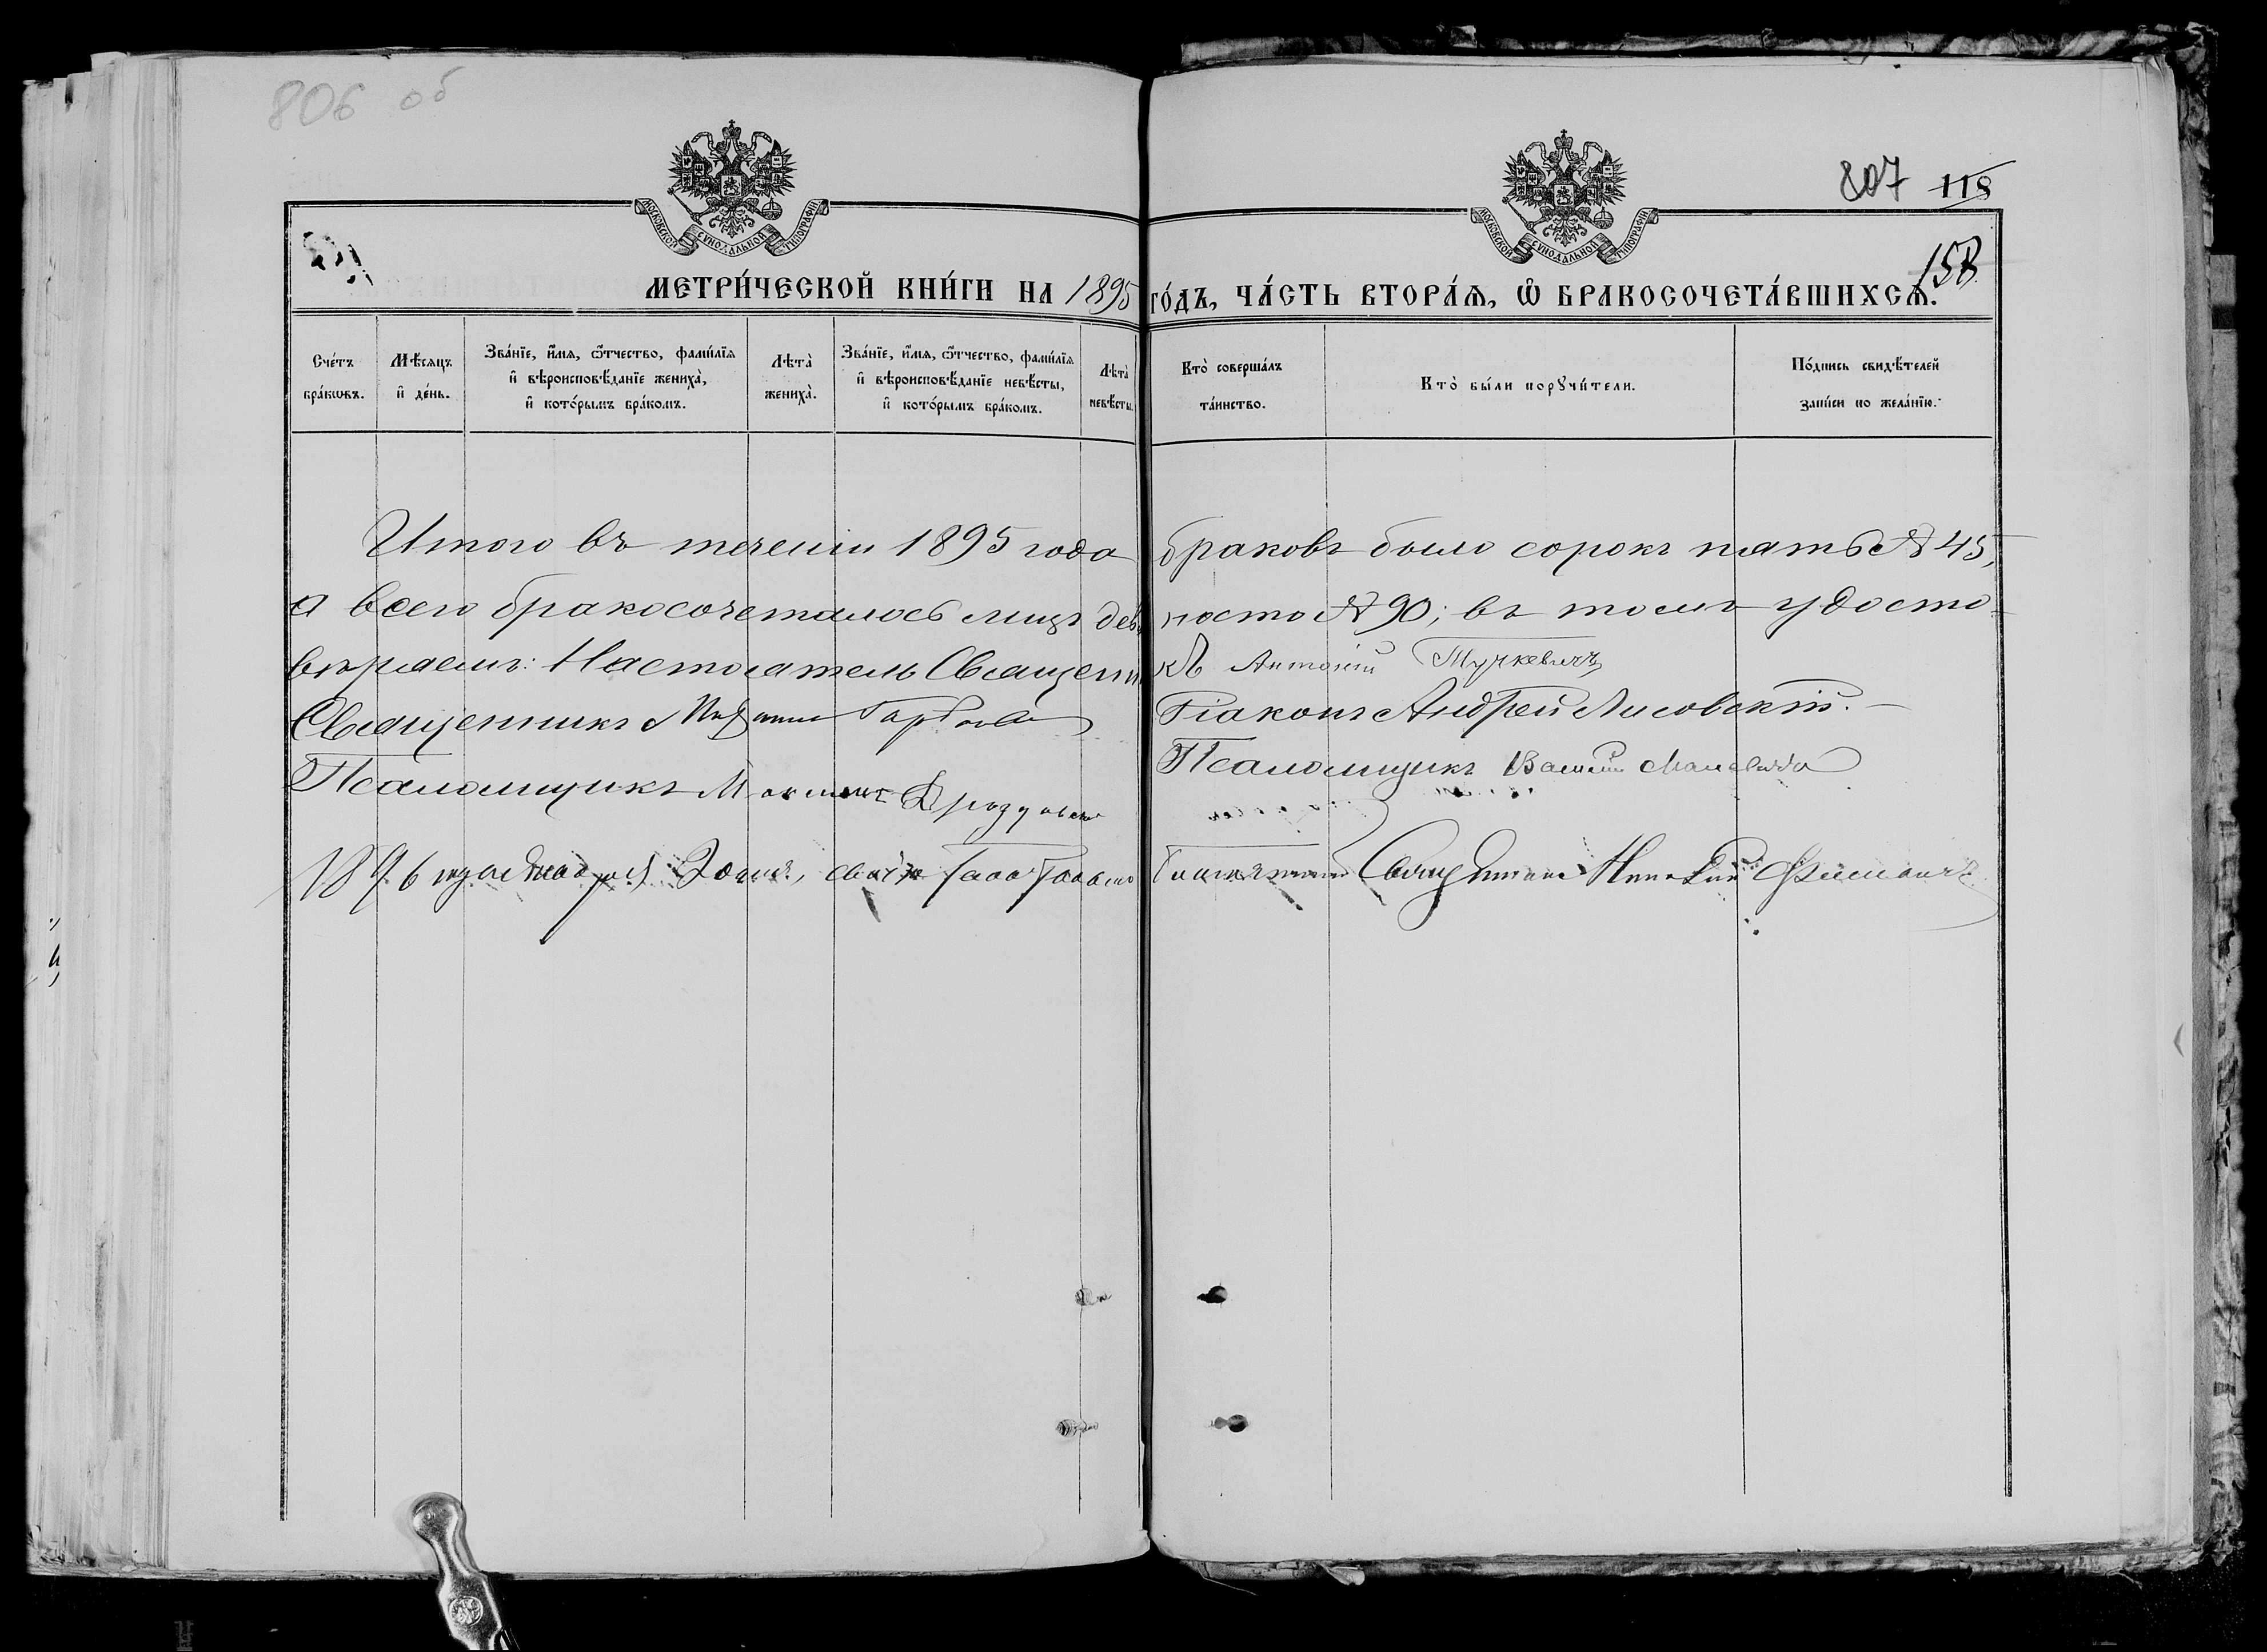 806 об
807 118
МОСКОВСКОЙ СѴНОДАЛЬНОЙ ТИПОГРАФІИ
МОСКОВСКОЙ СѴНОДАЛЬНОЙ ТИПОГРАФІИ
158
МЕТРИ́ЧЕСКОЙ КНИ́ГИ НА 1895 ГО́ДЪ, ЧА́СТЬ ВТОРА́Ѧ, Ѽ БРАКОСОЧЕТА́ВШИХСѦ.
Сче́тъ бра́кѡвъ.
Мѣ́сяцъ и҆ де́нь.
Зва́нїе, и҆́мѧ, ѻ҆́тчество, фамі́лїѧ и҆ вѣроисповѣ́данїе жениха̀, и҆ кото́рымъ бра́комъ.
Лѣта̀ жениха̀.
Зва́нїе, и҆́мѧ, ѻ҆́тчество, фамі́лїѧ и҆ вѣроисповѣ́данїе невѣ́сты, и҆ кото́рымъ бра́комъ.
Лѣта̀ невѣ́сты.
Кто̀ соверша́лъ та́инство.
Кто̀ бы́ли порꙋчи́тели.
По́дпись свидѣ́телей за́писи по жела́нїю.
Итого въ теченіи 1895 года браковъ было сорокъ пять № 45,
а всего бракосочеталось лицъ девяносто № 90; въ томъ удосто-
вѣряемъ: Настоятель Священникъ Антоній Тучкевичъ
Священникъ
Діаконъ Андрей Лисовскій.
Псаломщикъ Максимъ
Псаломщикъ
1896 года